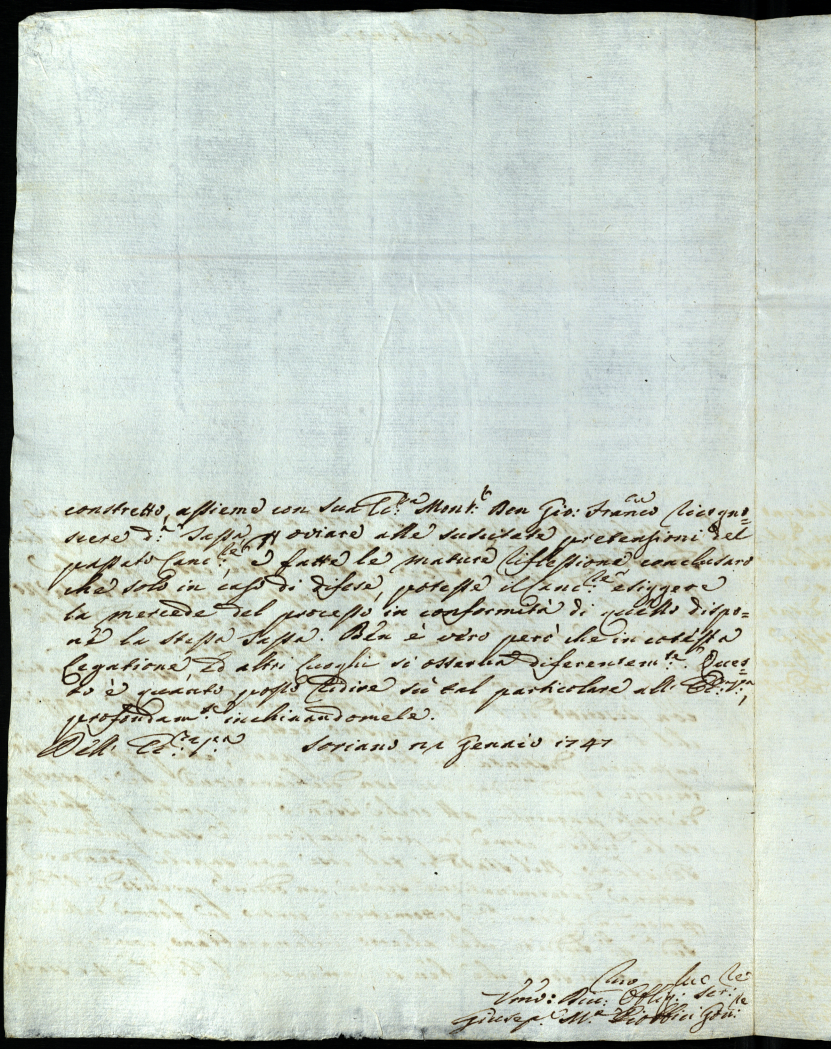 constretto, assieme con sua Ecc.za Mons.r Ben Gio: Fran.co ricogno=
scere d.a Tassa p oviare alle suscitate pretensioni del
passato Canc.re, e fatte le mature riflessioni conclusaro
che solo in caso di difese, potesse il Canc.re esiggere
la mercede del processo in conformità di quello dispo=
ne la stessa Tassa. Ben è vero però che in cotesta
Legatione ed altri luoghi si osserva diferentam.te. Ques=
to è quanto posso ridire sù tal particolare all'
profondam.te inchinandomele.
Dell' Soriano Gennaio 1747
Umo: Div: Oblig: Ser:
Giusep.e M.a Gov: